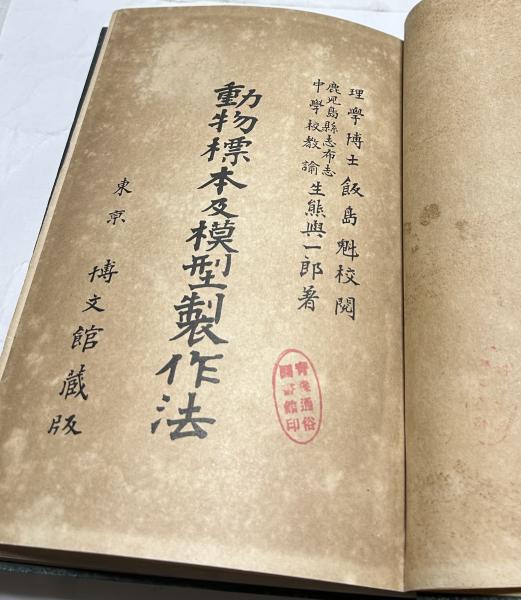 理學博士飯島魁校閲
鹿児島縣志布志
中學校教諭
生熊與一郎著
動物標本及模型製作法
東京
博文館蔵版
通俗
圖書館印